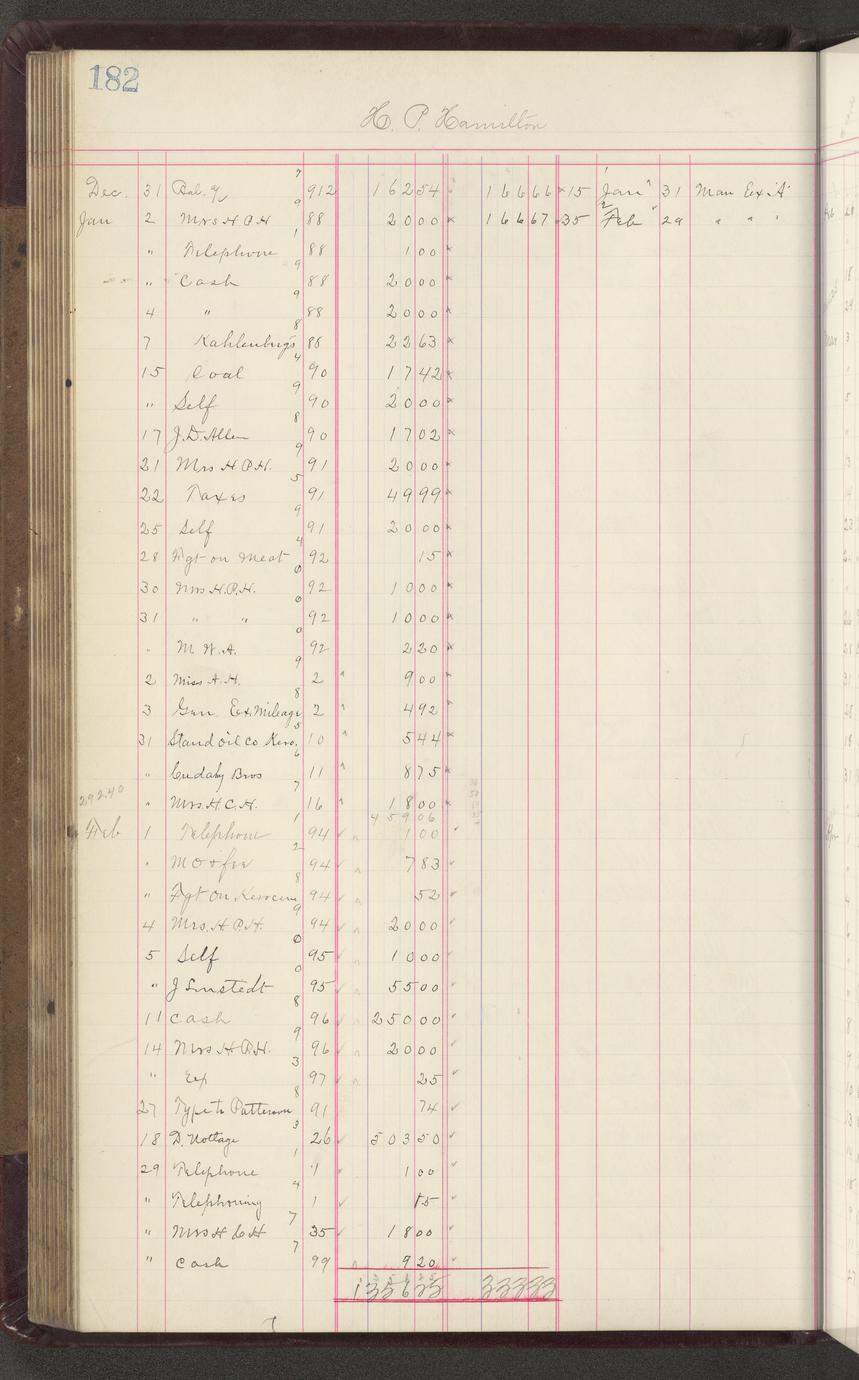 182
H. P. Hamilton
Dec. 31 Bal. 912 162 54 166 66 15 Jan 31 Man Ex "A"
Jan 2 Mrs H P H 88 20 00 166 67 35 Feb 29 " " "
" Telephone 88 1 00
" Cash 88 20 00
4 " 88 20 00
7 Kahlenburgs 88 22 63
15 Coal 90 17 42
" Self 90 20 00
17 J. D. Allen 90 17 02
21 Mrs H P H. 91 20 00
22 Taxes 91 49 99
25 Self 91 20 00
28 Fgt on Meat 92 15
30 Mrs. H. P. H. 92 10 00
31 " " 92 10 00
" M. W. A. 92 2 20
2 Miss A. H. 2 9 00
3 Gen. Ex. Mileage 2 4 92
31 Stand Oil Co Kero. 10 5 44
" Cudahy Bros 11 8 75
292.40
" Mrs. H. C. H. 16 18 00
459 06
Feb 1 Telephone 94 1 00
" 94 7 83
" Fgt on Kerocene 94 52
4 Mrs. H. P. H. 94 20 00
5 Self 95 10 00
" J 95 55 00
11 Cash 96 250 00
14 Mrs H. P. H. 96 20 00
" Exp 97 25
27 Type to Patterson 91 74
18 D. Nottage 26 503 50
29 Telephone 1 1 00
" Telephoning 1 15
" Mrs H C H 35 18 00
" Cash 99 9 20
1356 25 333 33